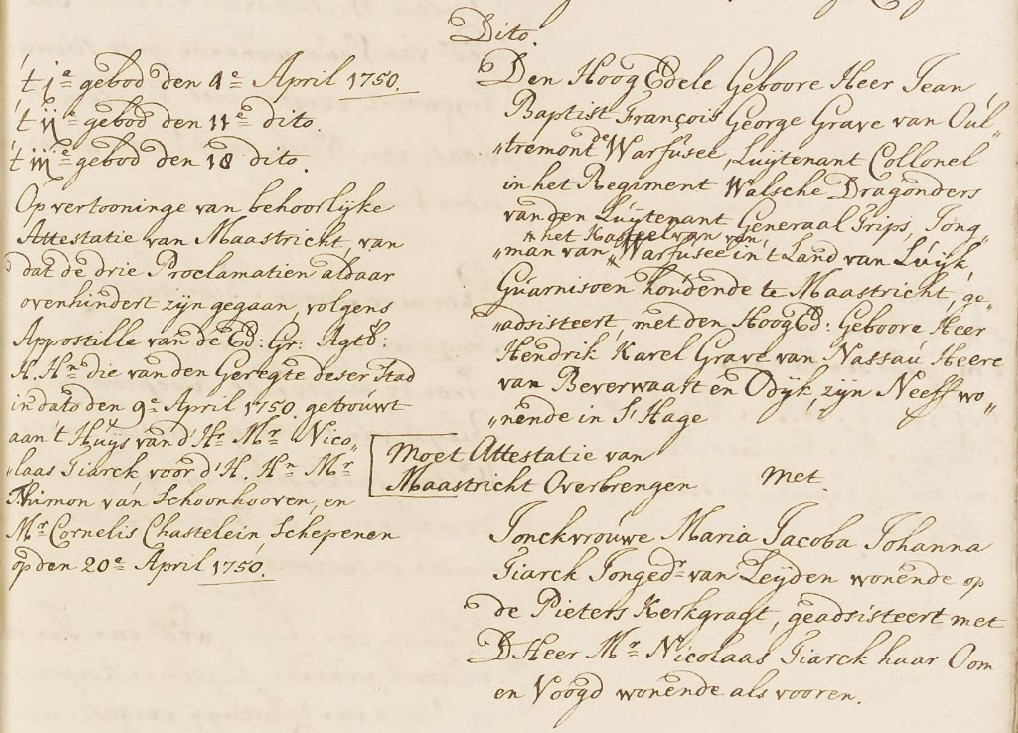 't je gebod den 4e April 1750.
't ije gebod den 11e dito.
't iije gebod den 18 dito
Op vertooninge van behoorlijke
Attestatie van Maastricht, van
dat de drie Proclamatien aldaar
overhindert zijn gegaan, volgens
Appostille van de Ed: Gr: Agtb:
H. Hn die van den Geregte deser Stad
in dato den 9e April 1750. getrouwt
aan 't Huijs van d' Hr Mr Nico„
„laas Tiarck, voor d' H. Hn Mr
Thimon van Schoonhooven, en
Mr Cornelis Chastelein, Schepenen
op den 20e April 1750.
Dito.
Den Hoog Edele Geboore Heer Jean
Baptist François George Grave van Oul„
„tremont de Warfusee, Luijtenant Collonel
in het Regiment Walsche Dragonders
van den Luijtenant Generaal Grips, Jong„
„het Kasteel van van,
„man van Warfusee in 't Land van Luijk,
Guarnisoen houdende te Maastricht, ge„
„adsisteert, met den Hoog Ed: Geboore Heer
Hendrik Karel Grave van Nassau Heere
van Beverwaart en Odijk zijn Neeff wo„
„nende in S'Hage
Moet Attestatie van
Maastricht Overbrengen
Met.
Jonckvrouwe Maria Jacoba Johanna
Tiarck Jongedr van Leijden wonende op
de Pieters Kerkgragt, geadsisteert met
D. Heer Mr Nicolaas Tiarck haar Oom
en Voogd wonende als vooren.